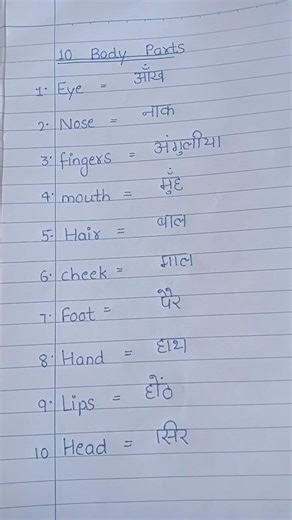 10 Body Parts
1. Eye = आँख
2. Nose = नाक
3. fingers = अंगुलीया
4. mouth = मुँह
5. Hair = बाल
6. cheek = गाल
7. foot = पैर
8. Hand = हाथ
9. Lips = होंठ
10 Head = सिर